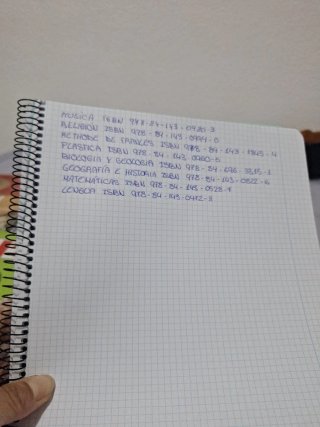 MÚSICA ISBN 978-84-143-0980-3
RELIGIÓN ISBN 978-84-143-0994-0
METHODE DE FRANÇÉS ISBN 978-84-143-1845-4
PLASTICA ISBN 978-84-143-0960-5
BIOLOGÍA Y GEOLOGÍA ISBN 978-84-698-
GEOGRAFÍA E HISTORIA ISBN 978-84-143-0522-6
MATEMÁTICAS ISBN 978-84-143-0528-
LENGUA ISBN 978-84-143-0472-